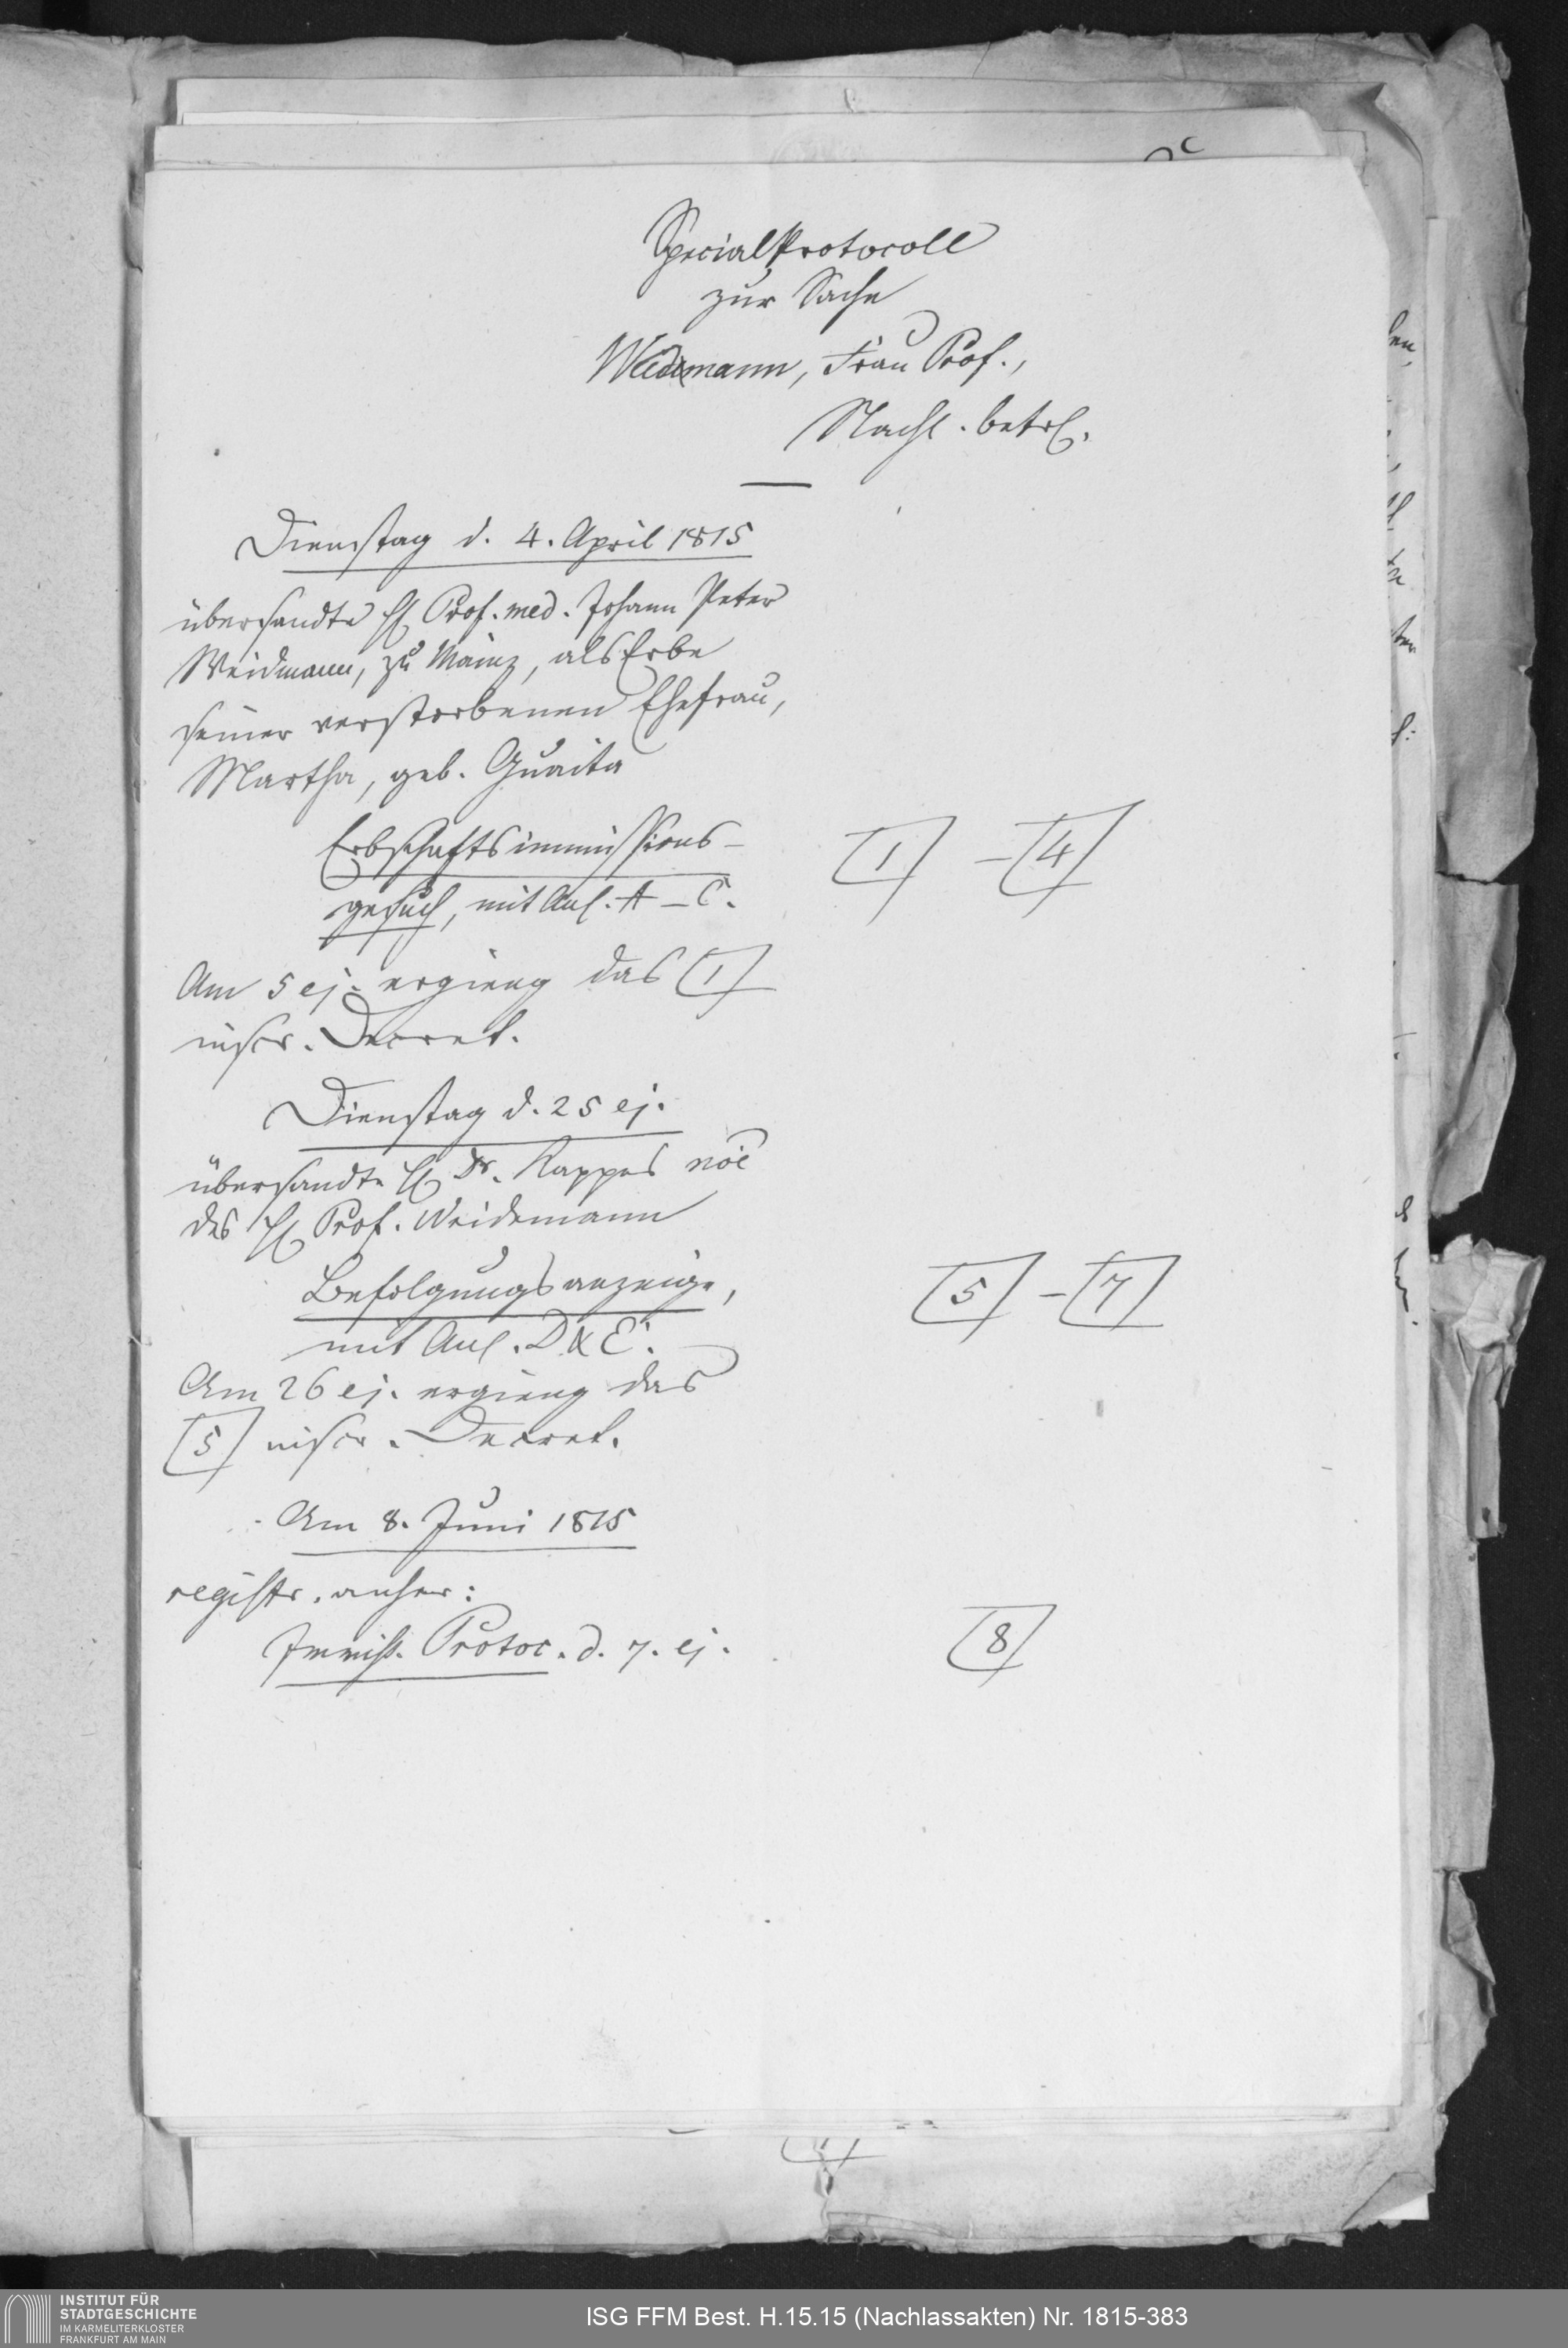 SpecialProtocoll
zur Sache
Weidmann, Frau Prof.,
Nachl. betrf.
Dienstag d. 4. April 1815
übersandte H. Prof. med. Johann Peter
Weidmann, zu Mainz, als Erbe
seiner verstorbenen Ehefrau,
Martha, geb. Guaita
Erbschaftsimmissions-
[1] - [4]
gesuch, mit Anl. A - C.
Am 5 ej. ergieng das [1]
inscr. Decret.
Dienstag d. 25 ej.
übersandte H. Dr. Kappes noe
des H. Prof. Weidemann
Befolgungsanzeige,
[5] - [7]
mit Anl. D & E.
Am 26 ej. ergieng das
[5] inscr. Decret.
Am 8. Juni 1815
registr. anher:
Immiss. Protoc. d. 7. ej.
[8]
INSTITUT FÜR
STADTGESCHICHTE
IM KARMELITERKLOSTER
FRANKFURT AM MAIN
ISG FFM Best. H.15.15 (Nachlassakten) Nr. 1815-383